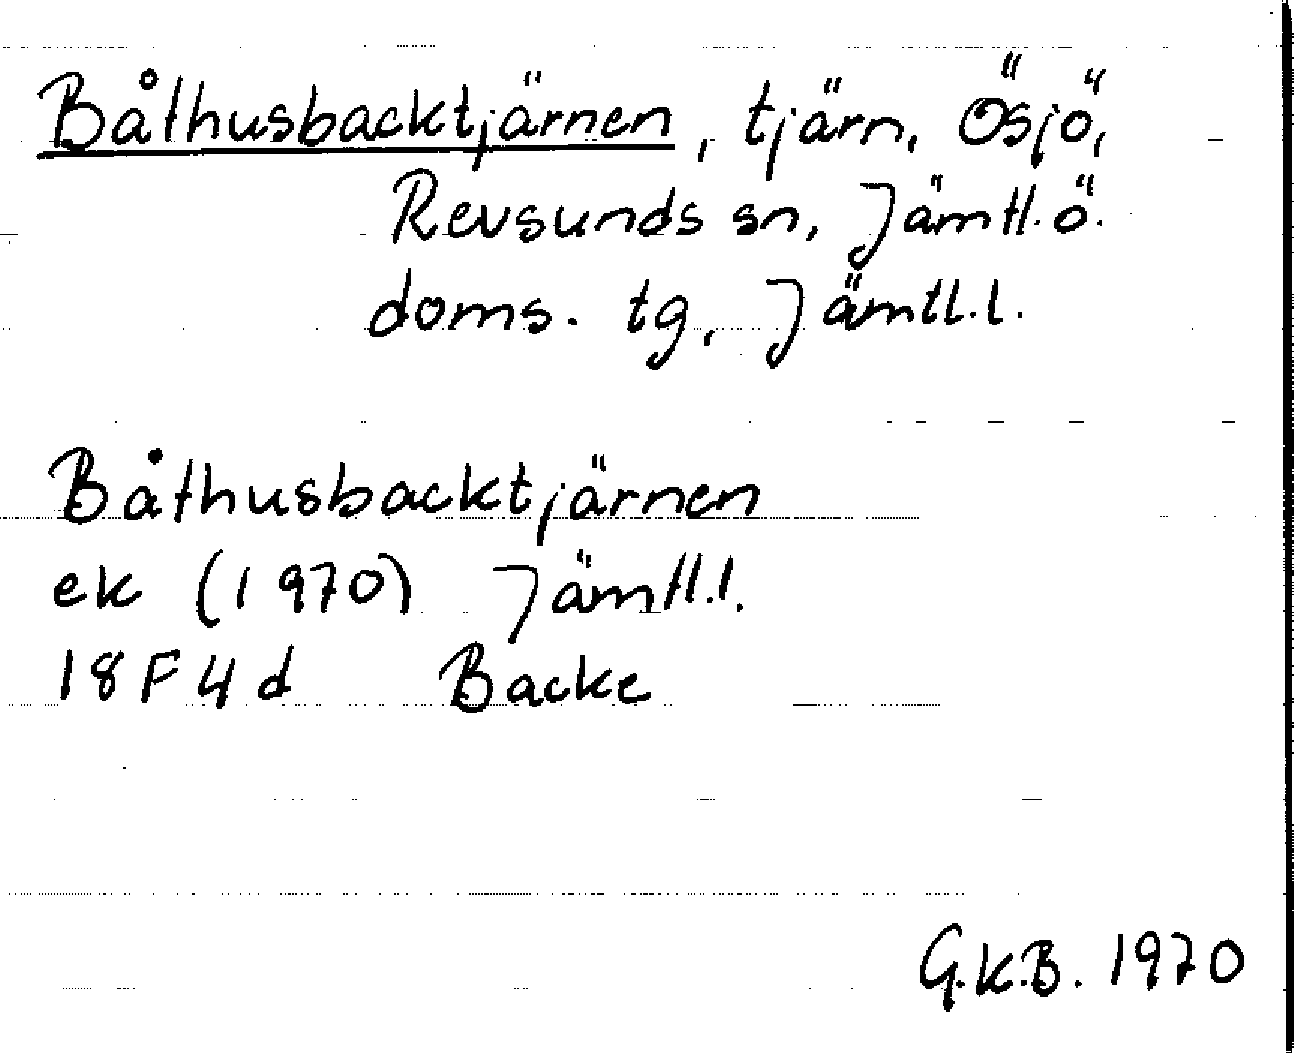 Båthusbacktjärnen, tjärn, Ösjö,
Revsunds sn, Jämtl. ö.
doms. tg, Jämtl. l.
Båthusbacktjärnen
ek (1970) Jämtl. l.
18 F 4 d Backe
G.K.B. 1970